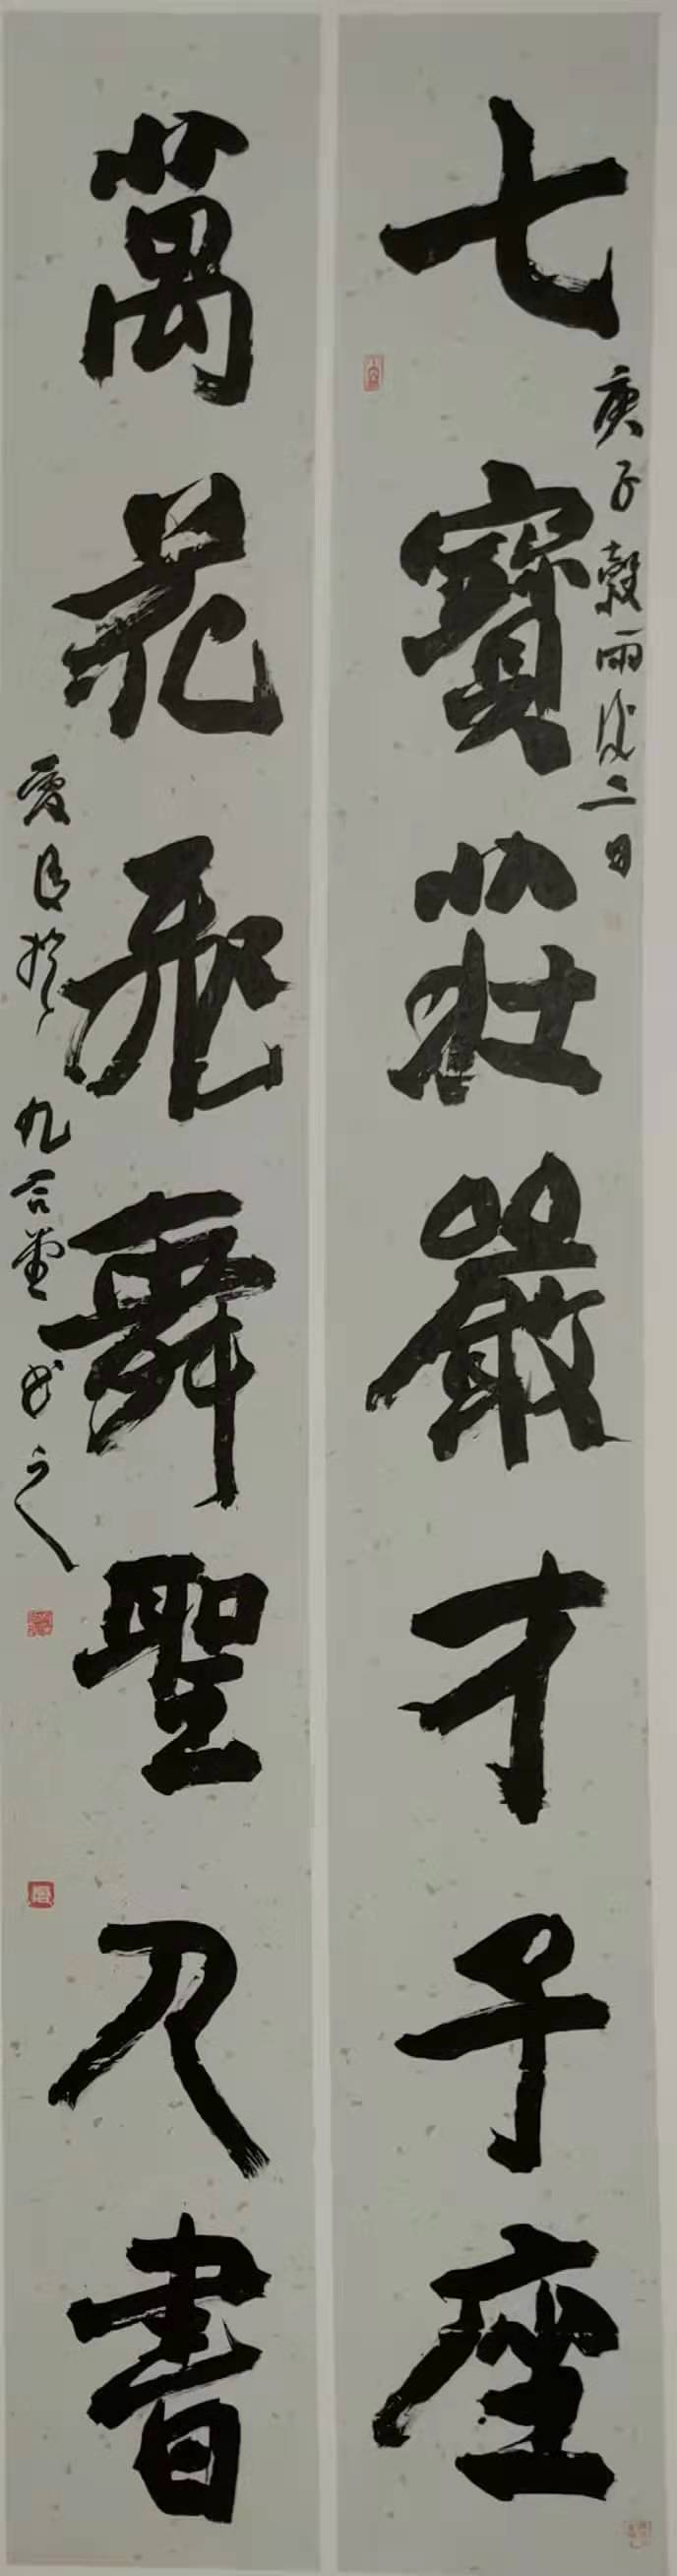 七寶莊嚴才子座
庚子穀雨後二日
萬花飛舞聖人書
於九合堂書之